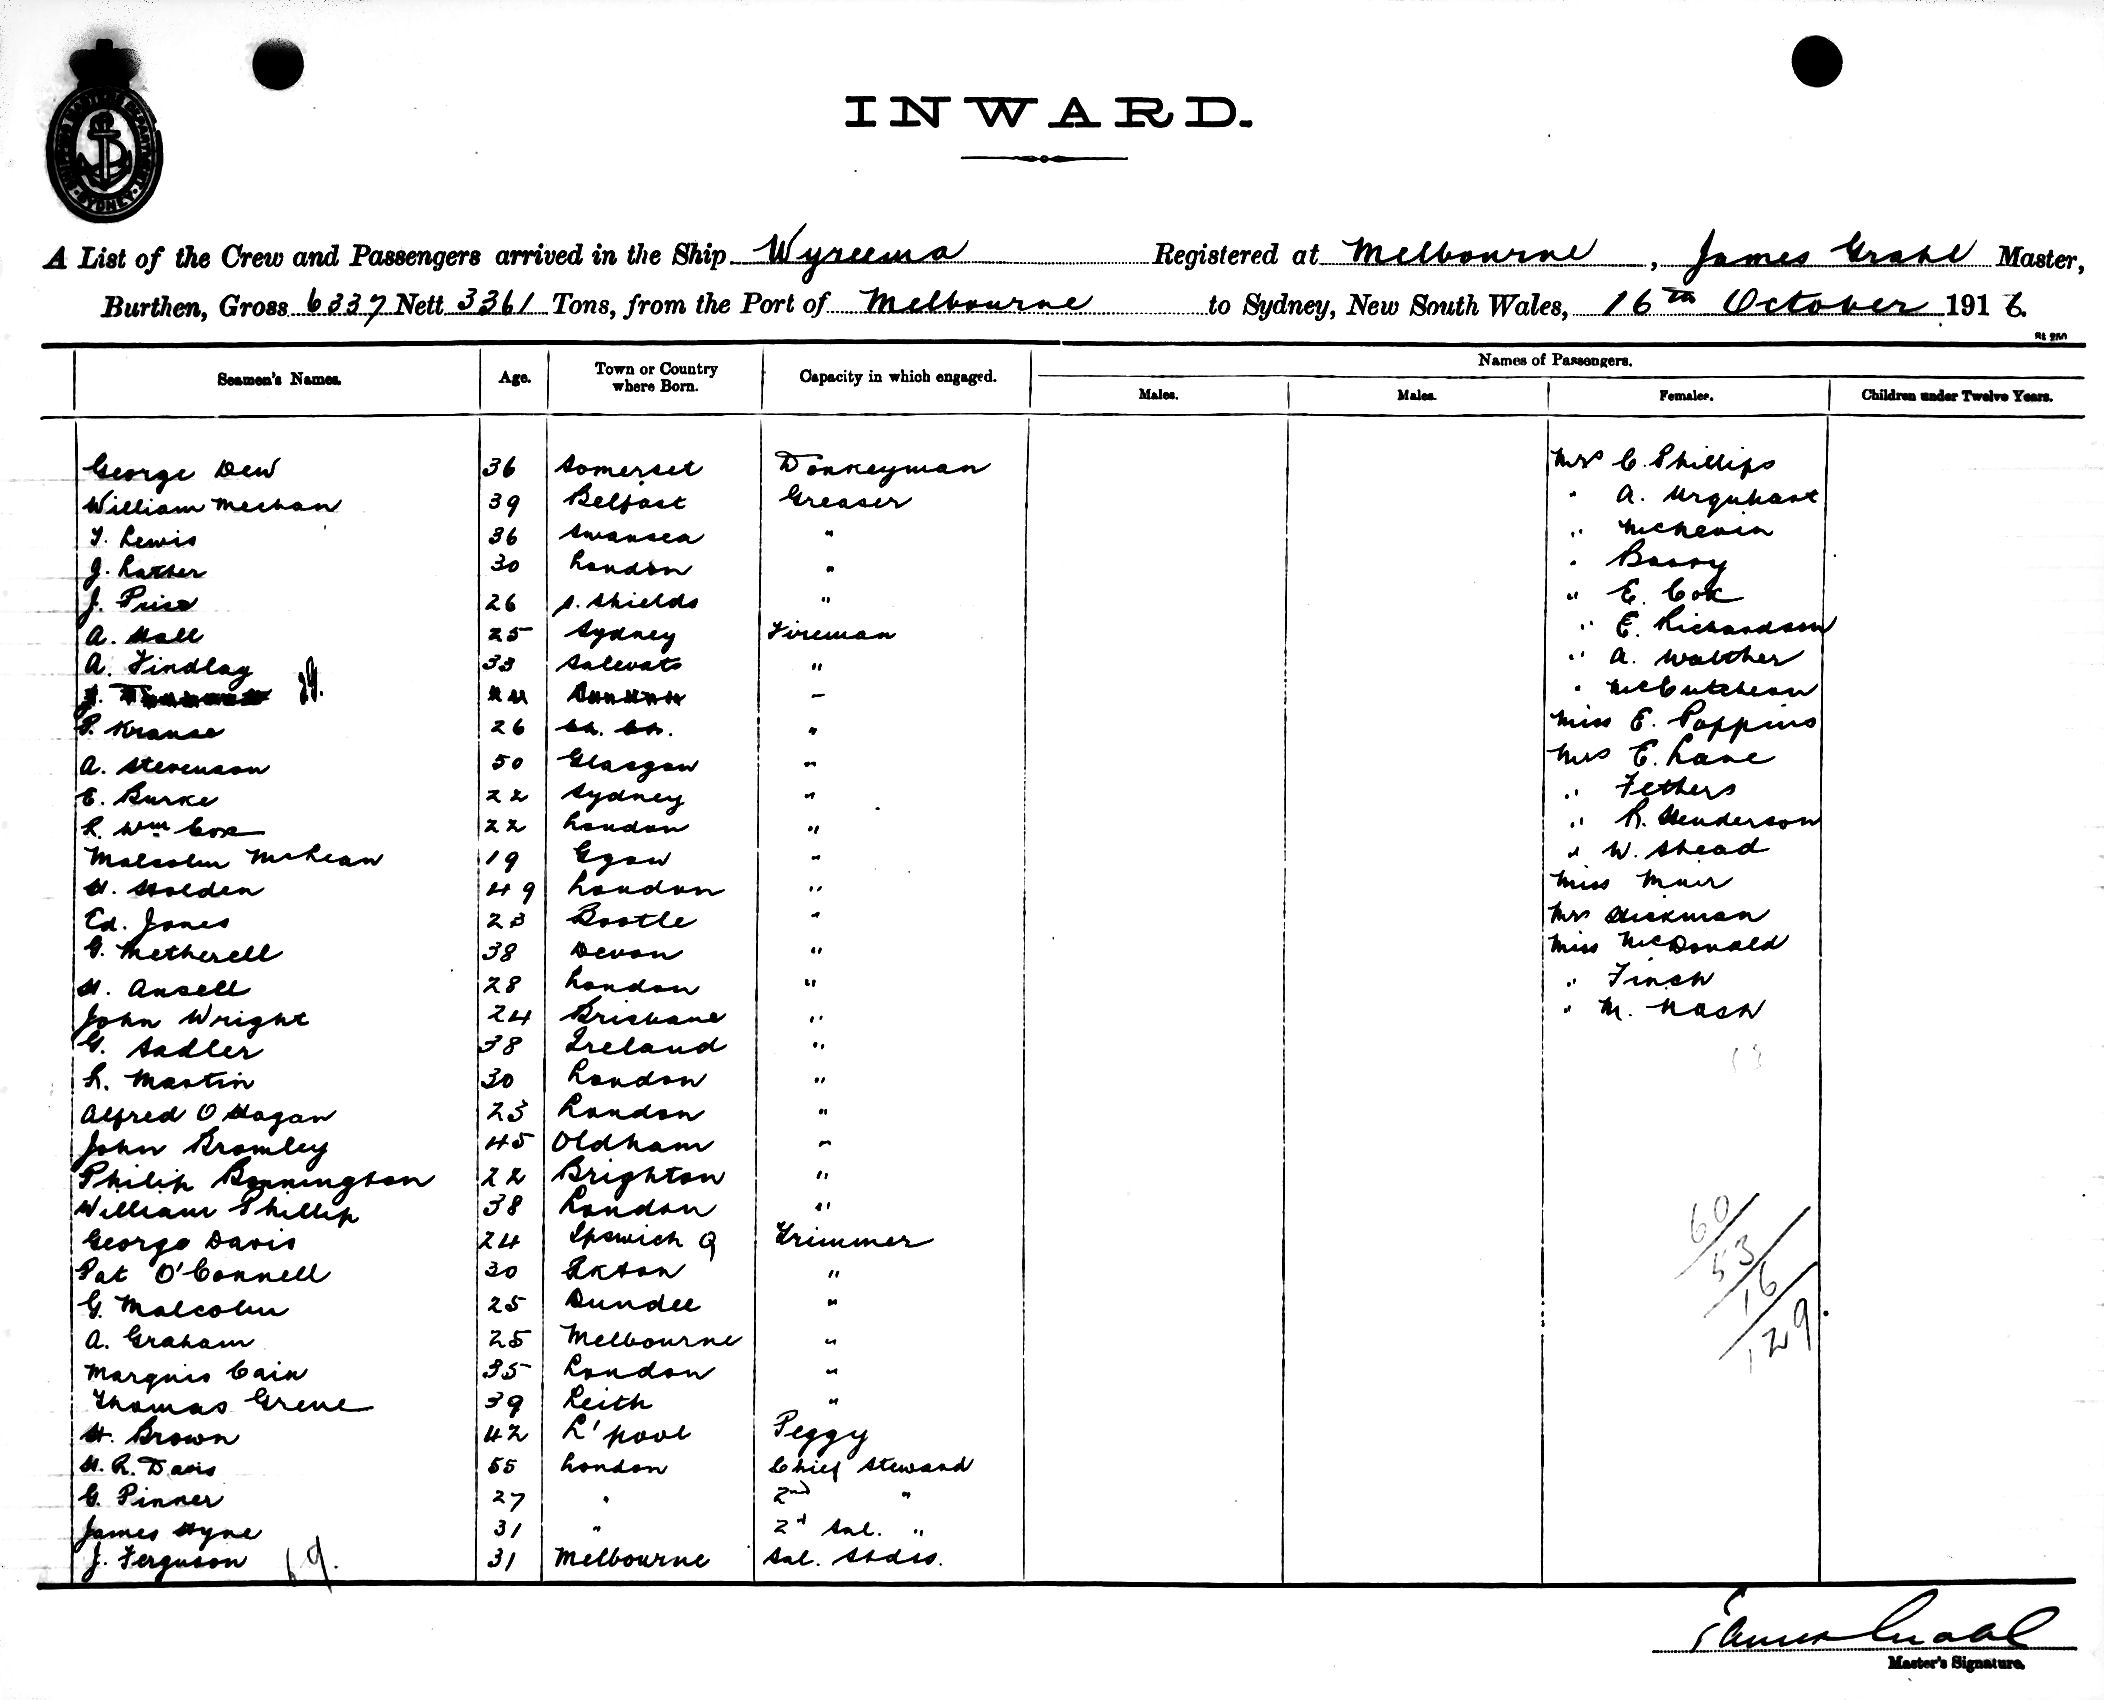 INWARD.
A List of the Crew and Passengers arrived in the Ship Wyreema Registered at Melbourne, James Grahl Master,
Burthen, Gross 6337 Nett 3361 Tons, from the Port of Melbourne to Sydney, New South Wales, 16th October 1916.
Names of Passengers.
Seamen's Names. Age. Town or Country where Born. Capacity in which engaged. Males. Males. Females. Children under Twelve Years.
George Dew 36 Somerset Donkeyman Mrs C. Phillips
William Mechan 39 Belfast Greaser " A. Urquhart
T. Lewis 36 Swansea " " McNevin
J. Lather 30 London " " Barry
J. Price 26 S. Shields " " E. Cox
A. Hall 25 Sydney Fireman " E. Richardson
A. Findlay 33 " " A. Walther
J. " McCutcheon
P. Krause 26 Ch. Ch. " Miss E. Poppins
A. Stevenson 50 Glasgow " Mrs E. Lane
E. Burke 22 Sydney " " Fethers
R. Wm Cox 22 London " " R. Henderson
Malcolm McLean 19 Ggow " " W. Shead
H. Holden 49 London " Miss Muir
Ed. Jones 23 Bootle " Mrs Hickman
G. Metherell 38 Devon " Miss McDonald
H. Ansell 28 London " " Finch
John Wright 24 Brisbane " " M. Nash
G. Sadler 38 Ireland "
L. Martin 30 London "
Alfred O Hagan 23 London "
John Bromley 45 Oldham "
Philip Bonnington 22 Brighton "
William Phillip 38 London "
George Davis 24 Ipswich Q Trimmer
Pat O'Connell 30 "
G. Malcolm 25 Dundee "
A. Graham 25 Melbourne "
Marquis Cain 35 London "
Thomas Grene 39 Leith "
H. Brown 42 L'pool Peggy
H. R. Davis 55 London Chief Steward
G. Pinner 27 " 2nd "
James Hyne 31 " 2d Sal. "
J. Ferguson 69. 31 Melbourne Sal. Stdss.
60
53
16
129
Master's Signature.